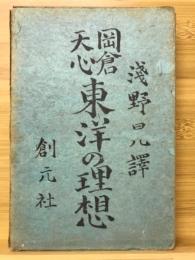 淺野晃譯
岡倉天心
東洋の理想
創元社